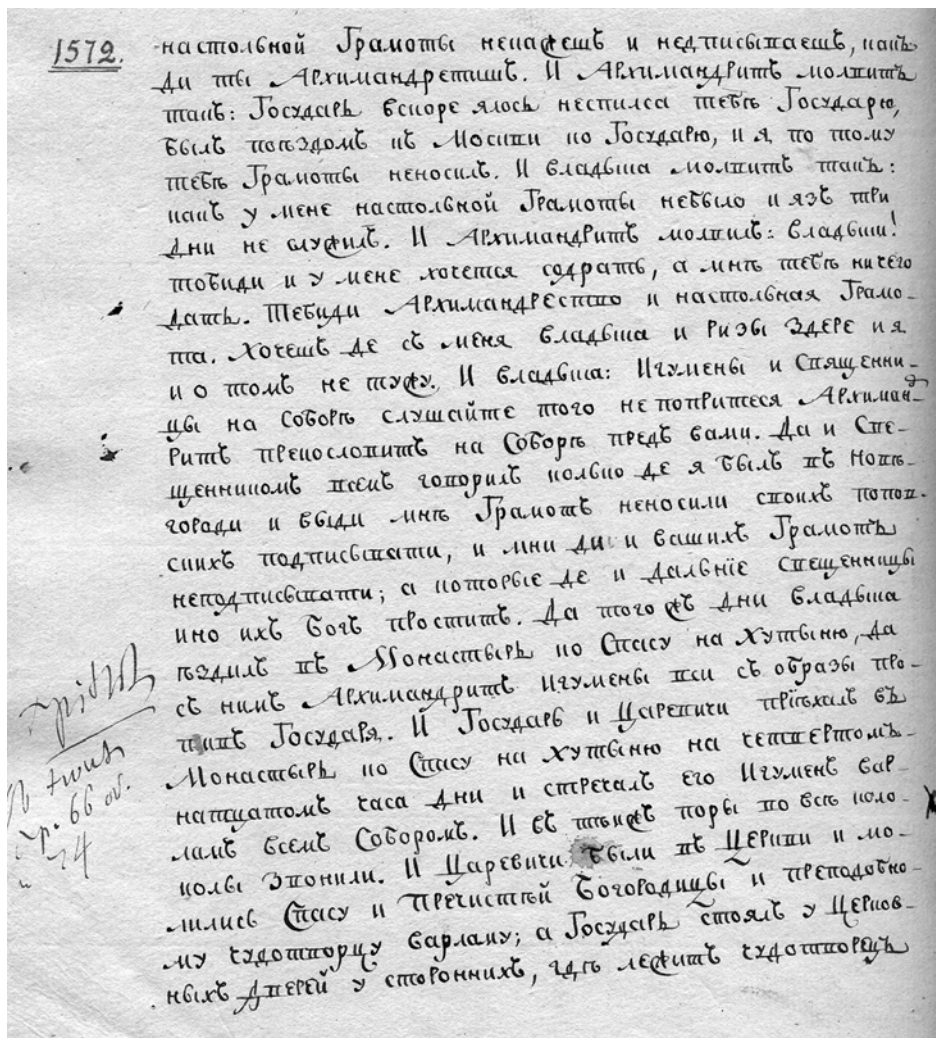 1572.
настольной Грамоты некажешъ и недписываешъ, какъ
ди ты Архимандретишъ. И Архимандритъ молвитъ
такъ: Государь вскоре ялось неспился тебѣ Государю,
былъ поѣздомъ къ Москви по Государю, и я по тому
тебѣ Грамоты неносилъ. И владыка молвитъ такъ:
какъ у мене настольной Грамоты небыло и язъ три
дни не служилъ. И Архимандритъ молвилъ: владыки!
тобиди и у мене хочется содрать, а мнѣ тебѣ ничего
дать. Тебиди Архимандрество и настольная Грамо-
та. Хочешъ де съ меня владыка и ризы здере и я
и о томъ не тужу. И владыка: Игумены и Священни-
цы на Соборѣ слушайте того непопритеся Архиман-
ритъ прекословитъ на Соборѣ предъ вами. Да и Све-
щенникомъ всемъ говорилъ колько де я былъ въ Новѣ-
городи и выди мнѣ Грамотъ неносили своихъ попов-
скихъ подписывати, и мни ди и вашихъ Грамотъ
неподписывати; а которые де и дальнїе свещенницы
ино ихъ Богъ простить. Да того жъ дни владыка
ѣздилъ въ Монастырь ко Спасу на Хутыню, да
съ нимъ Архимандритъ Игумены вси съ образы про-
тивъ Государя. И Государь и Царевичи прїѣхалъ въ
Монастырь ко Спасу на Хутыню на четвертомъ-
натцатомъ часа дни и стречалъ его Игуменъ Вар-
ламъ всемъ Соборомъ. И въ тыежъ поры по всѣ коло-
колы звонили. И Царевичи были въ Церкви и мо-
лились Спасу и Пречистѣй Богородицы и преподобно-
му чудотворцу Варламу; а Государь стоялъ у Церков-
ныхъ дверей у сторонныхъ, гдѣ лежитъ чудотворецъ
66 об.
24